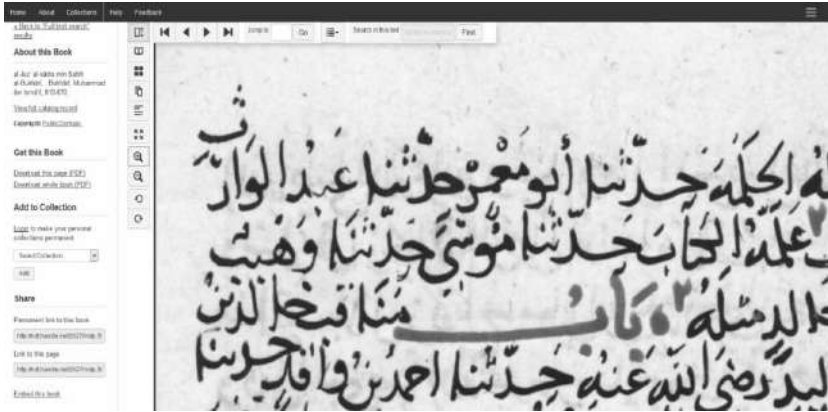 Home About Collections Help Feedback
« Back to "Full-text search"
results
About this Book
View full catalog record
Copyright: Public Domain.
Get this Book
Download this page (PDF)
Download whole book (PDF)
Add to Collection
Login to make your personal
collections permanent
Select Collection
Add
Share
Permanent link to this book
Link to this page
Embed this book
Jump to
Go
Search in this text
Find
الحكمة حدثنا أبو معمر حدثنا عبد الوارث
علمه الكتاب حدثنا موسى حدثنا وهيب
خالد مثله باب مناقب خالد بن
الوليد رضي الله عنه حدثنا احمد بن واقد حدثنا